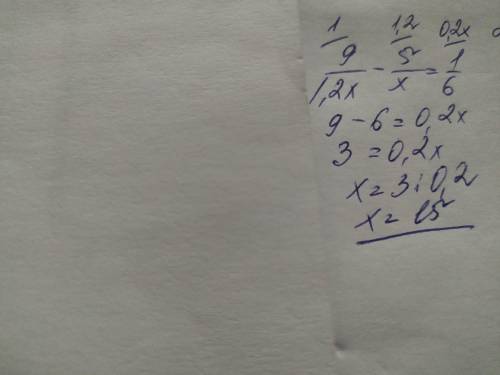 1/ 1,2/ 0,2x/
9/1,2x - 5/x = 1/6
9 - 6 = 0,2x
3 = 0,2x
x = 3 : 0,2
x = 15